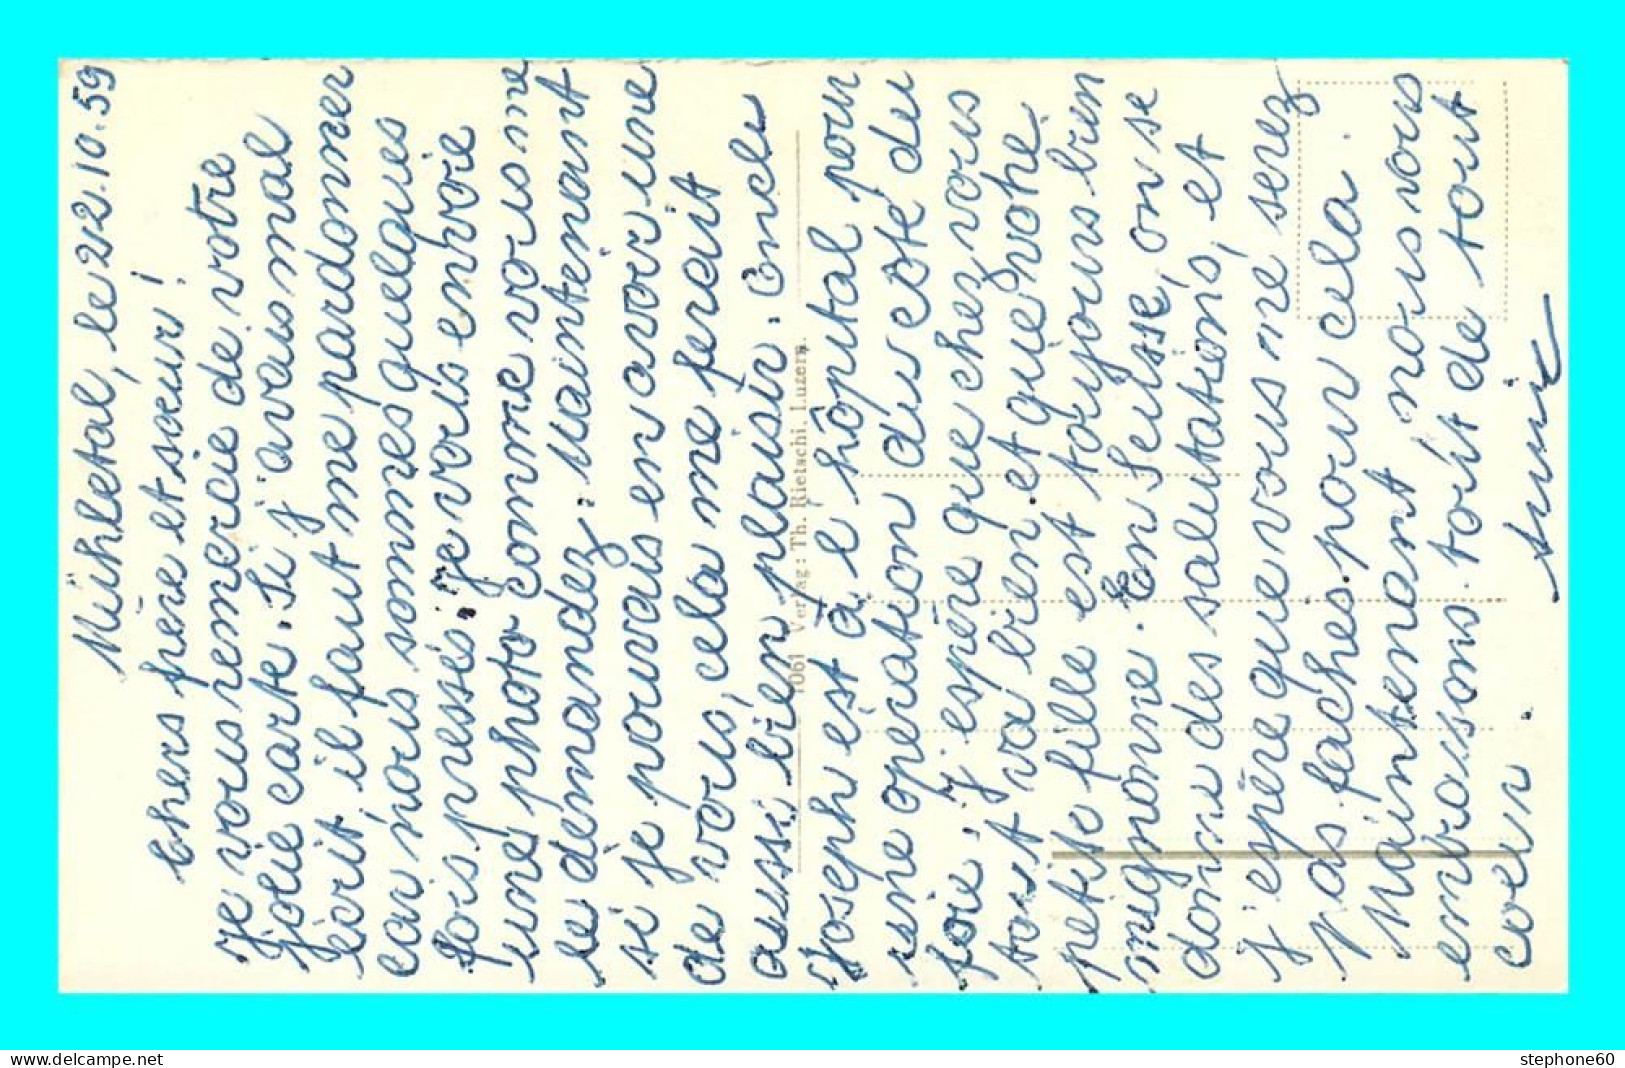 Mühletal, le 22.10.59
Chers frère et soeur!
Je vous remercie de votre
jolie carte. Si j'avais mal
écrit, il faut me pardonner
car nous sommes quelques
fois pressés. Je vous envoie
une photo comme vous me
le demandez. Maintenant
si je pouvais en avoir une
de vous, cela me ferait
aussi bien plaisir. Oncle
Joseph est à l'hôpital pour
une opération du côté du
foie. J'espère que chez vous
tout va bien et que votre
petite fille est toujours bien
mignonne. En Suisse, on se
donne des salutations, et
j'espère que vous ne serez
pas fachés pour cela.
Maintenant nous vous
embrassons tout de tout
coeur.
1061 Verlag: Th. Rietschi, Luzern.
www.delcampe.net
stephone60